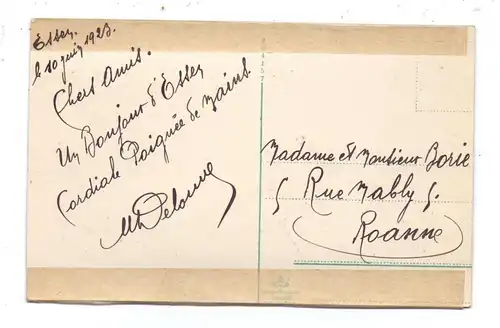 Essen.
le 10 juin 1923.
Chers Amis.
Un Bonjour d'Essen
Cordiale Poignée de mains.
Madame et Monsieur Borie
Rue Mably
Roanne